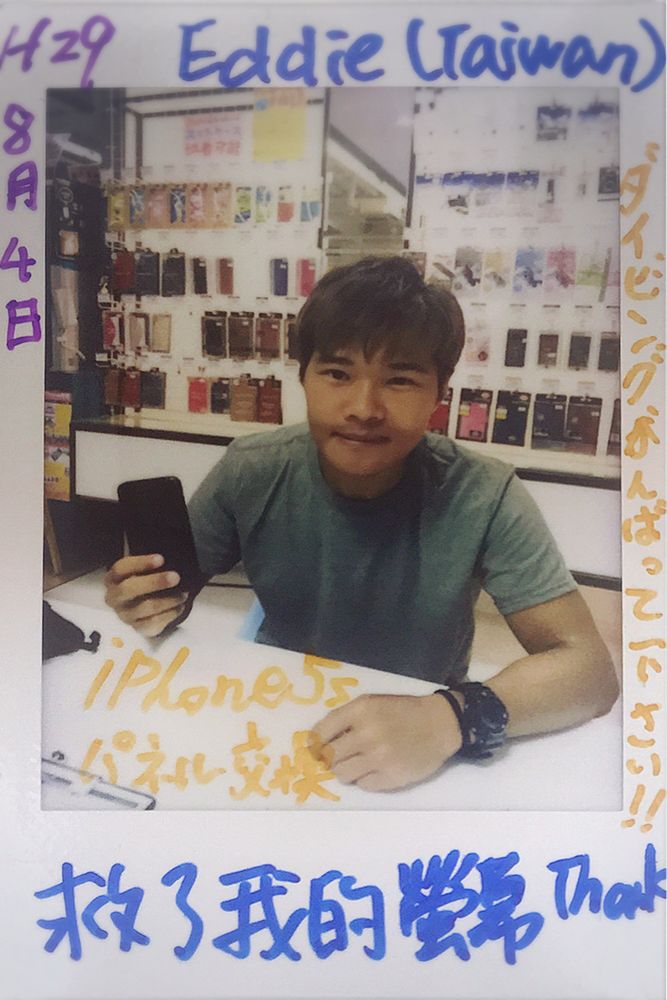 H29
8月4日
Eddie (Taiwan)
ダイビングがんばって下さい!!
iPhone5s
パネル交換
救了我的螢幕 Thank